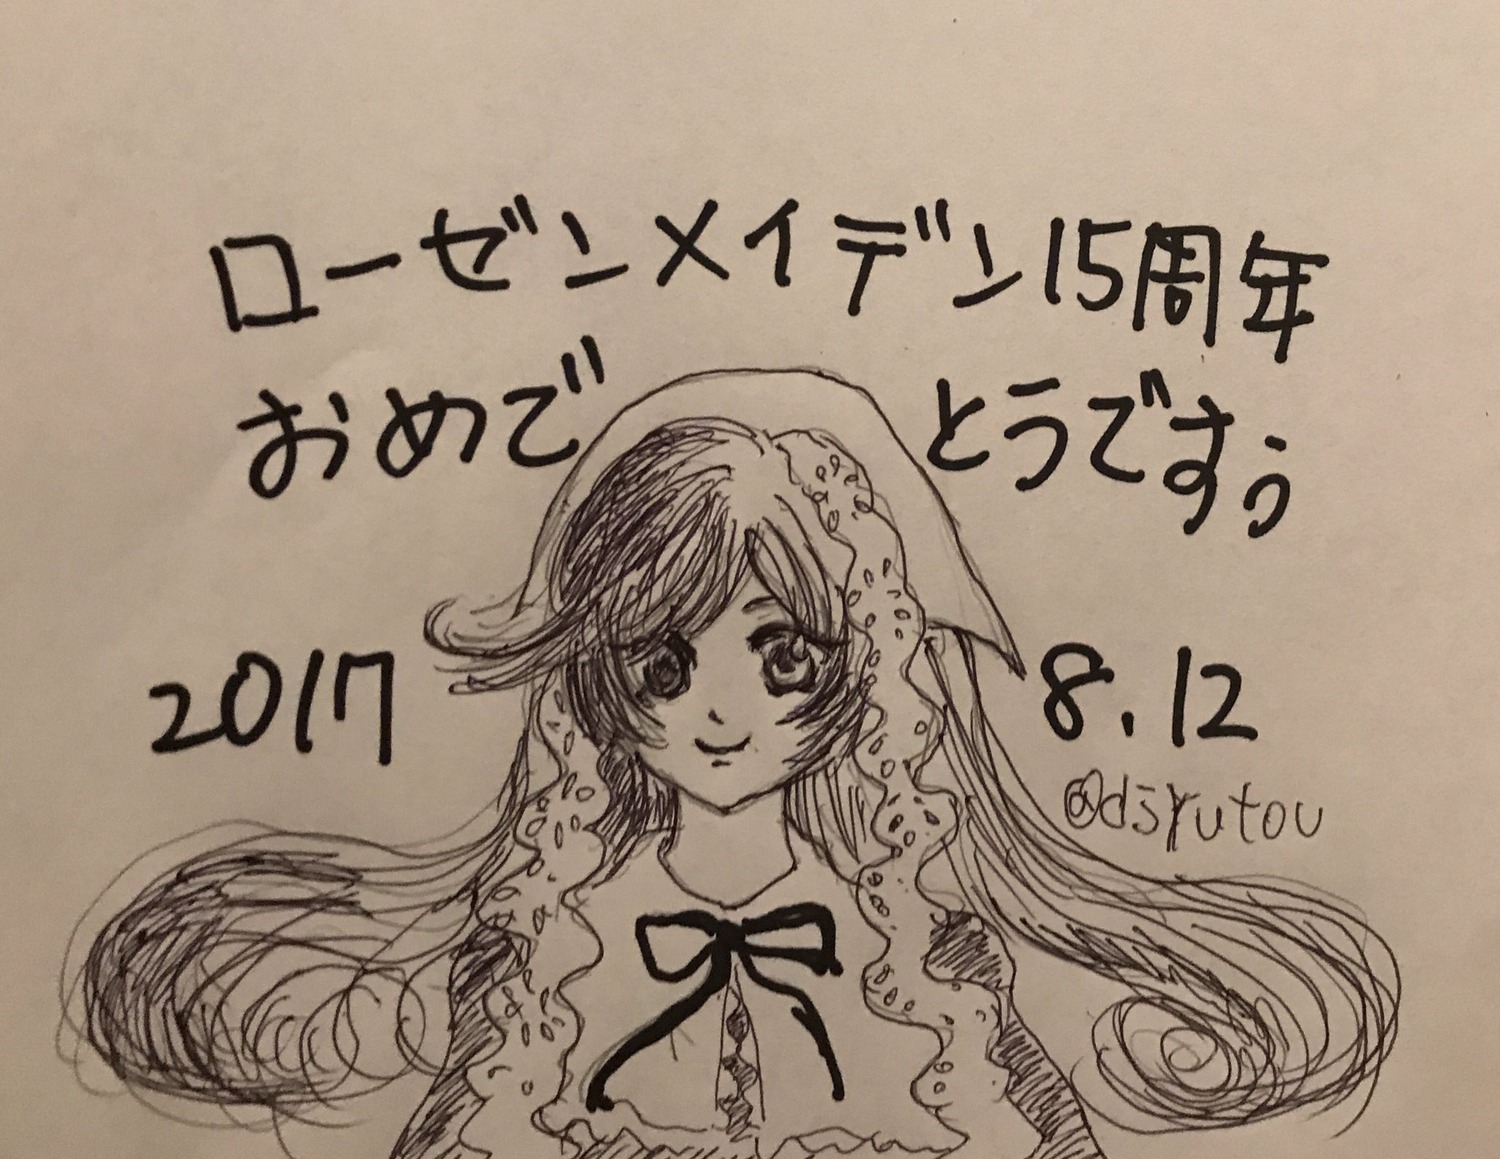 ローゼンメイデン15周年
おめでとうですぅ
2017 8.12
@dsyutou